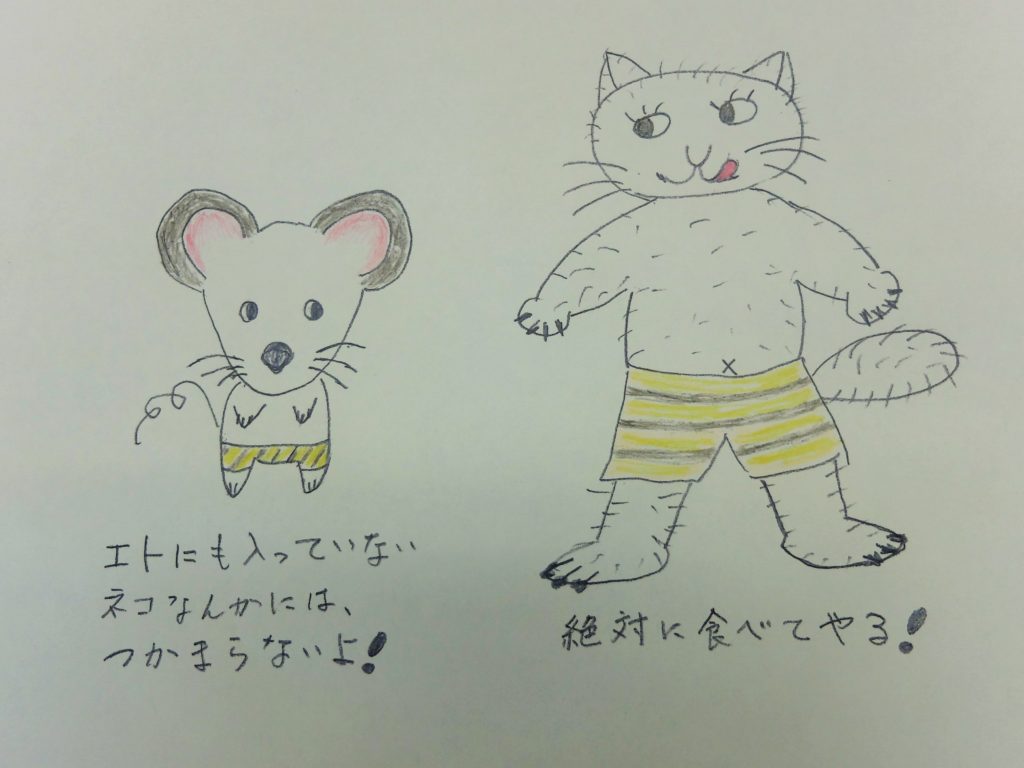 エトにも入っていない
ネコなんかには、
つかまらないよ!
絶対に食べてやる!